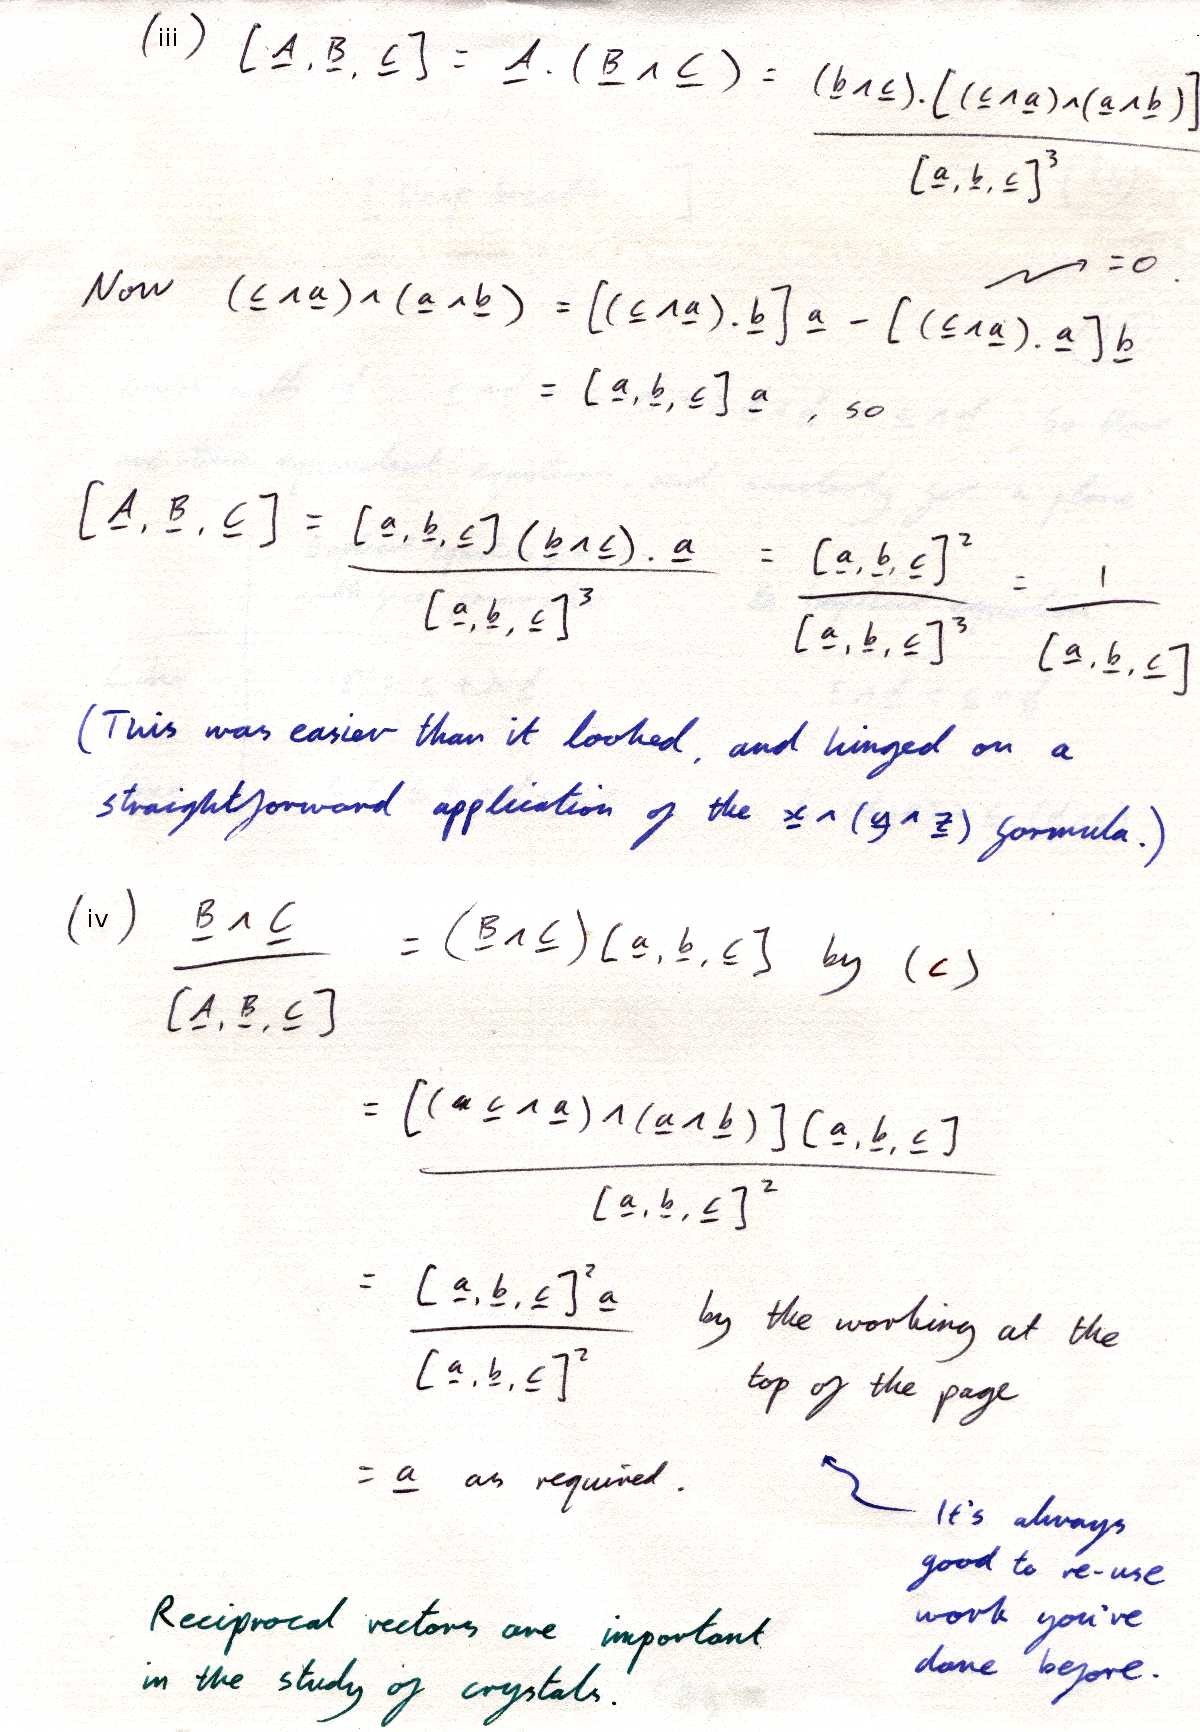 (iii) [A, B, C] = A . (B ∧ C) = (b∧c).[(c∧a)∧(a∧b)]
[a, b, c]³
= 0
Now (c∧a)∧(a∧b) = [(c∧a).b] a - [(c∧a).a] b
= [a, b, c] a , so
[A, B, C] = [a, b, c] (b∧c).a = [a, b, c]² = 1
[a, b, c]³ [a, b, c]³ [a, b, c]
(This was easier than it looked, and hinged on a
straightforward application of the x∧(y∧z) formula.)
(iv) B∧C = (B∧C)[a, b, c] by (c)
[A, B, C]
= [(c∧a)∧(a∧b)][a, b, c]
[a, b, c]²
= [a, b, c]² a by the working at the
[a, b, c]² top of the page
= a as required.
It's always
good to re-use
work you've
done before.
Reciprocal vectors are important
in the study of crystals.